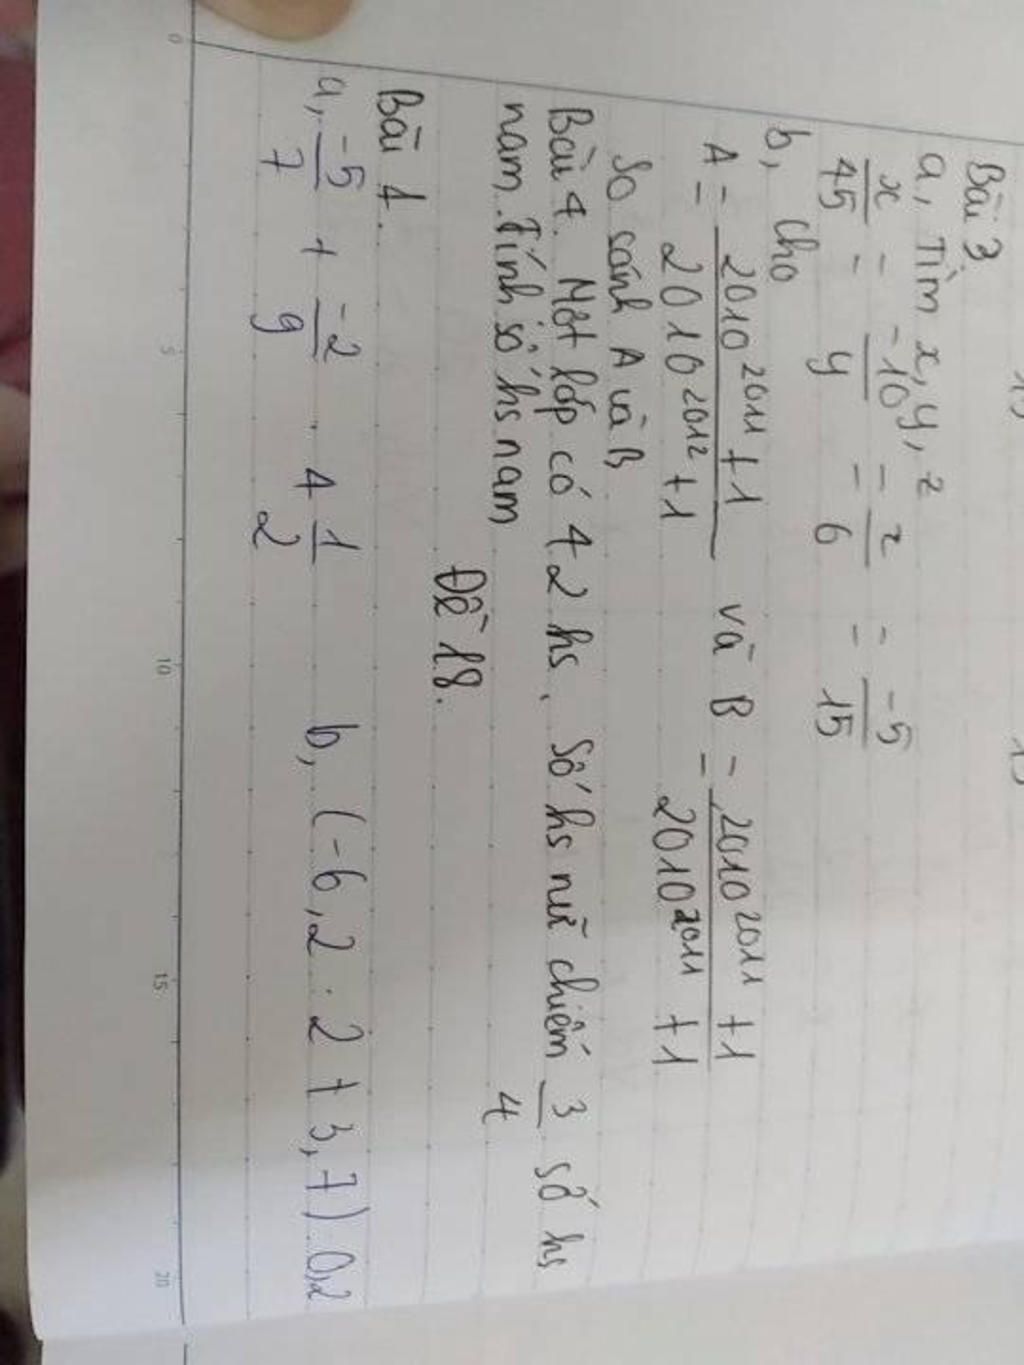 Bài 3
a, Tìm x, y, z
x/45 = -10/y = z/6 = -5/15
b, cho
A = 2010^2011 + 1 / 2010^2012 + 1 và B = 2010^2011 + 1 / 2010^2011 + 1
So sánh A và B
Bài 4. Một lớp có 42 hs. Số hs nữ chiếm 3/4 số hs
nam. Tính số hs nam
Đề 18.
Bài 1.
a, -5/7 + -2/9 . 4 1/2 b, (-6,2 : 2 + 3,7) 0,2
0 5 10 15 20